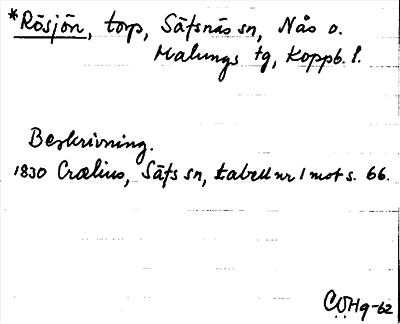 *Rösjön, torp, Säfsnäs sn, Nås o.
Malungs tg, Koppb. l.
Beskrivning.
1830 Crælius, Säfs sn, tabell nr 1 mot s. 66.
CÖHg-62